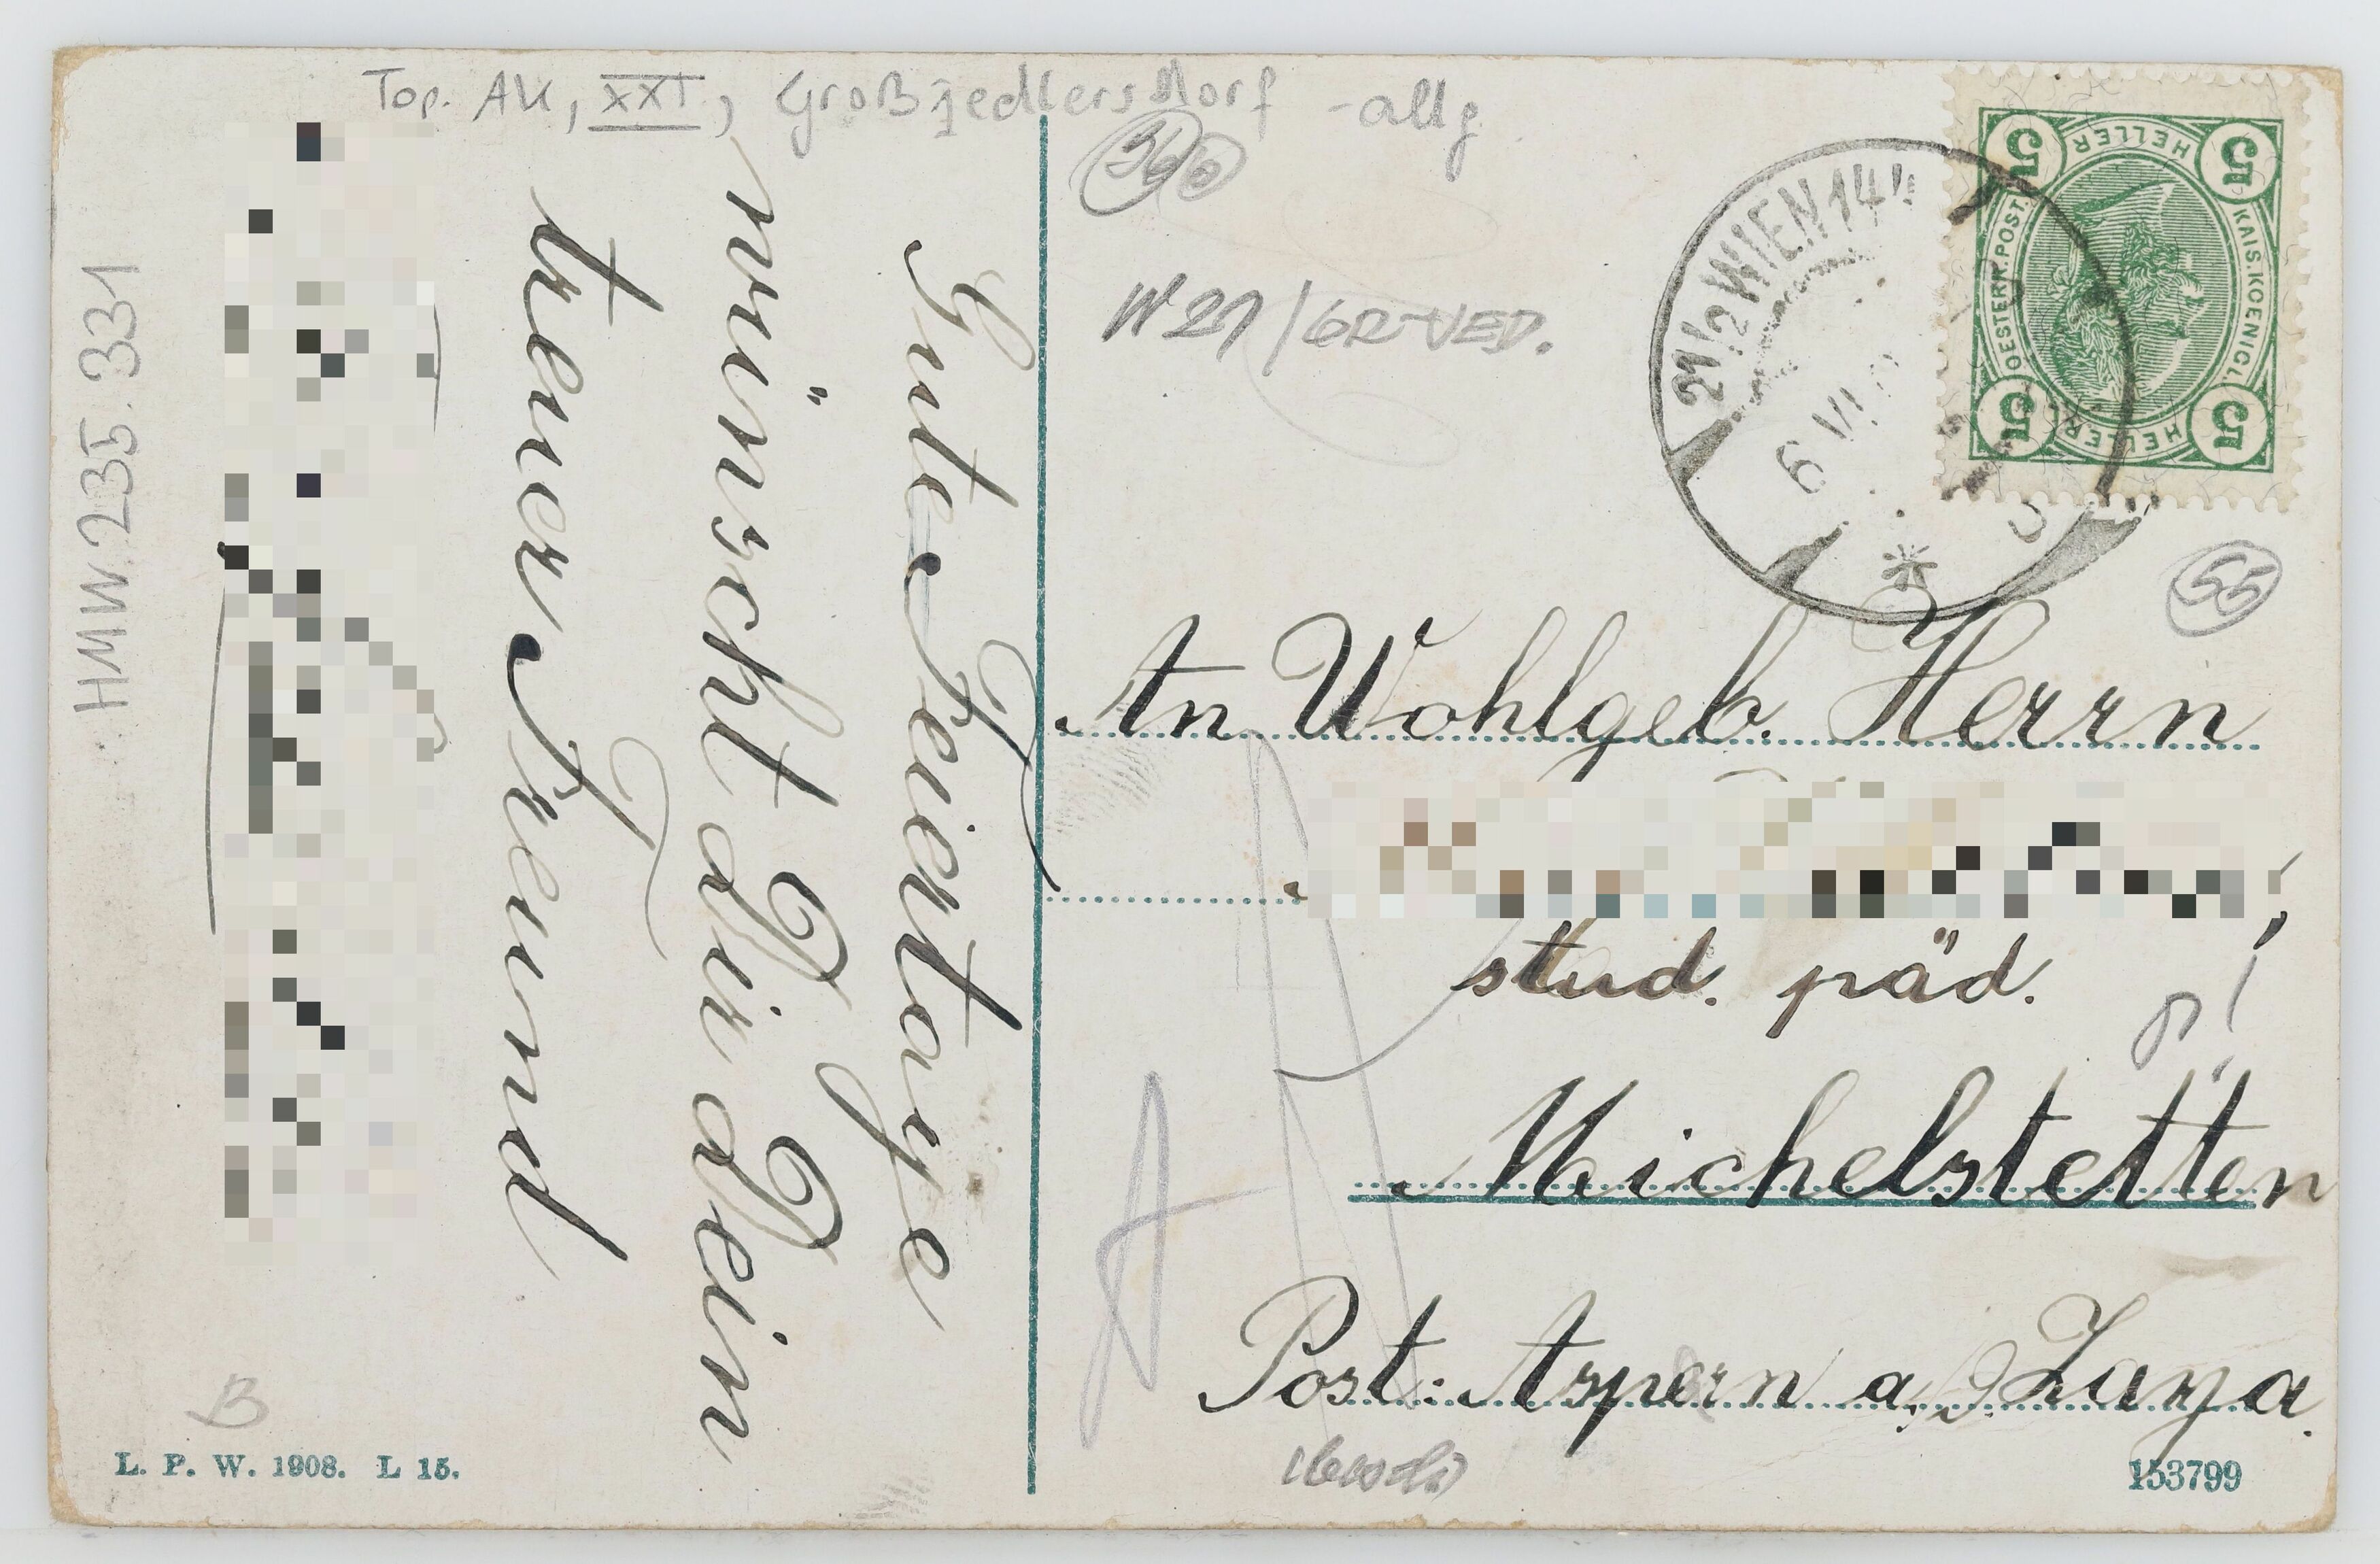 Top. AK, XXI, Großjedlersdorf - allg
HMW. 235.331
Gute Feiertage
wünscht Dir Dein
treuer Freund
B
L. P. W. 1908. L 15.
W 21/GR-JED.
21/2 WIEN 14
6 VI
5 HELLER 5
OESTERR. POST.
KAIS. KOENIGL.
5 HELLER 5
55
An Wohlgeb. Herrn
stud. päd.
Michelstetten
Post: Aspern a. D. Zaya.
153799